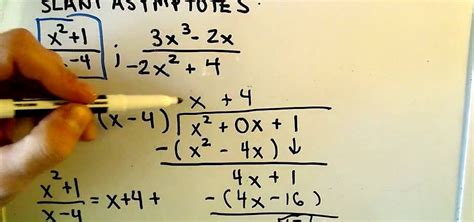 SLANT ASYMPTOTES:
x²+1 / x-4 ; 3x³-2x / -2x²+4
x +4
(x-4) x² + 0x + 1
-(x² - 4x) ↓
4x + 1
x²+1 / x-4 = x+4+
-(4x-16)